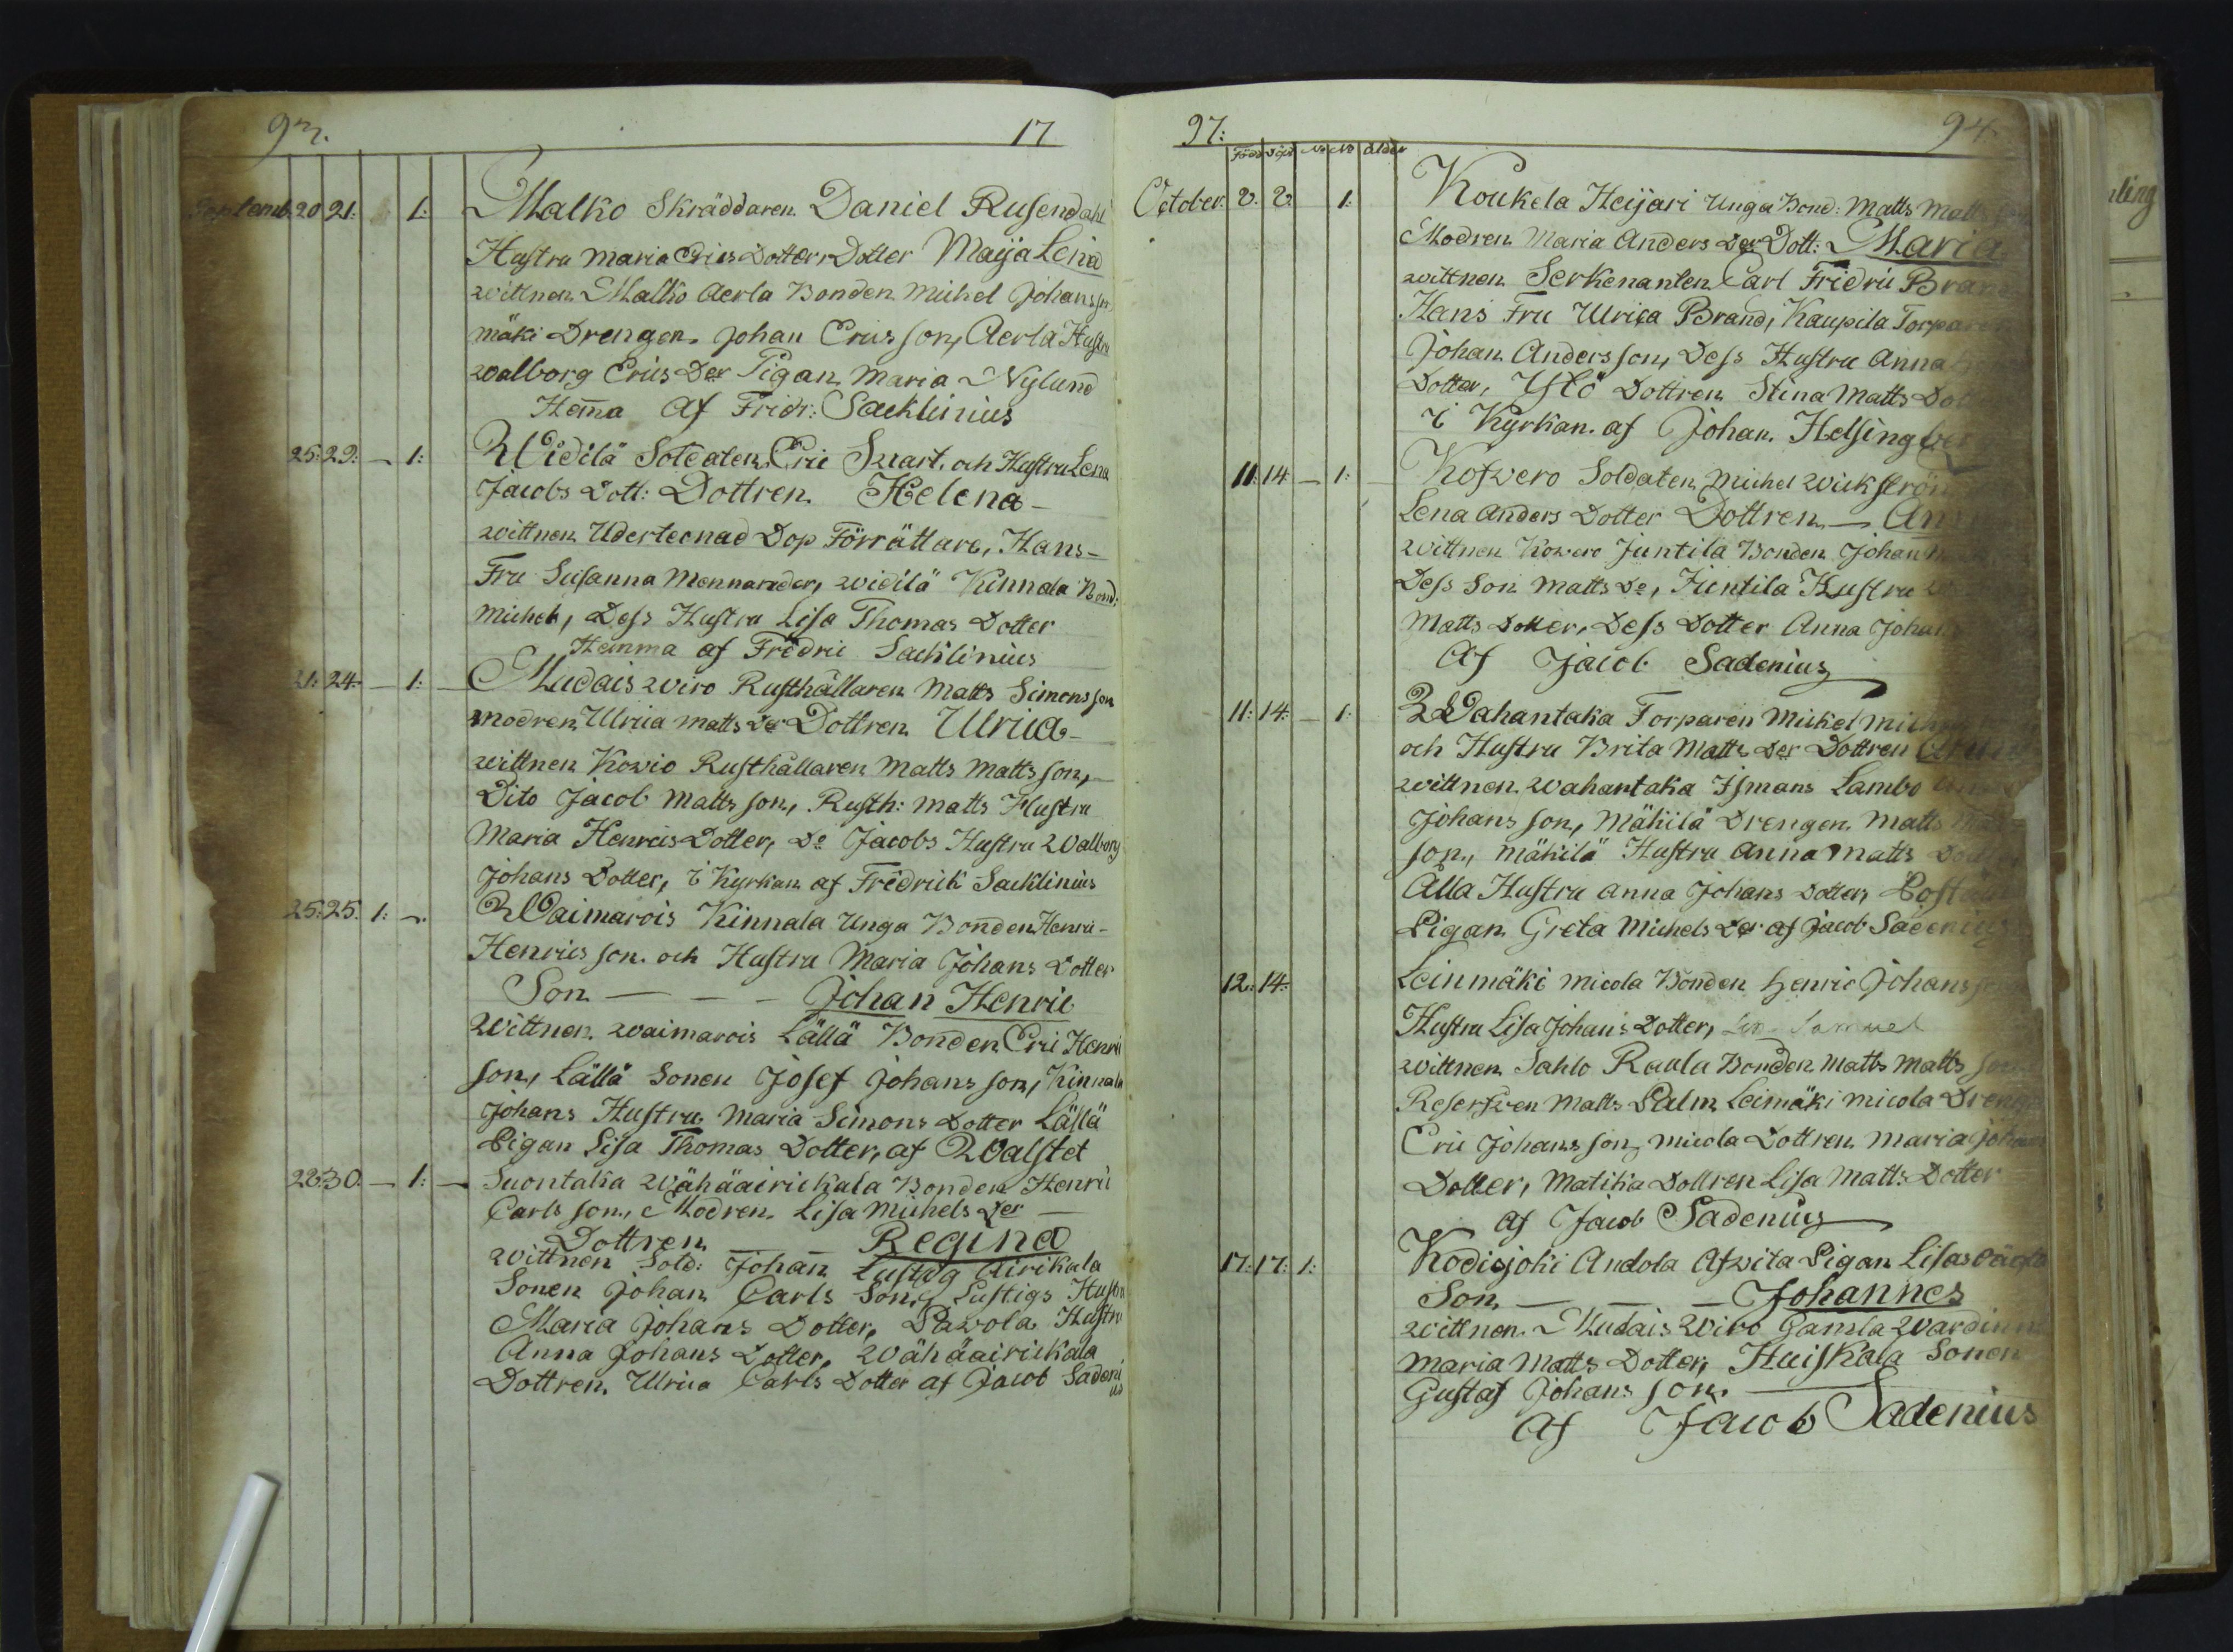 93. 17
Septemb. 20 21: 1: Malko Skräddaren Daniel Rusendahl
Hustru Maria Erics Dotter, Dotter Maija Lena
wittnen Malko Aerla Bonden Michel Johansson
mäki Drengen Johan Ericsson, Aerla Hustru
walborg Erics Der Pigan Maria Nylund
Hem̄a Af Fridr: Sacklinius
25: 29: — 1: Widilä Soldaten Eric Svart. och Hustru Lena
Jacobs Dott: Dottren Helena —
wittnen Udertecnad Dop Förrättare, Hans —
Fru Susanna Mennander, widilä Kinnala Bond:
Michel, Dess Hustru Lisa Thomas Dotter
Hemma af Fredric Sacklinius
21: 24 — 1: — Mudais wiro Rusthållaren Matts Simonsson
modren Ulrica Matts Der Dottren Ulrica —
wittnen Kowio Rusthållaren Matts Mattsson, —
Dito Jacob Mattsson, Rusth: Matts Hustru
Maria Henrics Dotter, Do Jacobs Hustru Walborg
Johans Dotter, i Kyrkan af Fredrick Sacklinius
25: 25. 1: Waimarois Kinnala Unga Bonden Henric —
Henricsson. och Hustru Maria Johans Dotter
Son — — — Johan Henric
Wittnen. waimarois Lällä Bonden Eric Henric
son, Lällä Sonen Josef Johansson, Kinnala
Johans Hustru Maria Simons Dotter Lällä
Pigan Lisa Thomas Dotter, af Walstet
28: 30. — 1: — Suontaka Wähäairickala Bonden Henric
Carlsson, Modren. Lisa Michels Der —
Dottren — Regina
wittnen Sold: Johan Lustig Airikala
Sonen Johan Carls Son, Lustigs Hustru
Maria Johans Dotter, Pawola Hustru
Anna Johans Dotter, Wähäairickala
Dottren Ulrica Carls Dotter af Jacob Sadenius
97: 94.
Född Döpt No No Ålder
October. 2. 2. 1: Koukela Heijari Unga Bond: Matts Matts
Modren Maria Anders Der Dott: Maria
wittnen Serkenanten Carl Fridric Brand
Hans Fru Ulrica Brand, Kaupila Torparen
Johan Andersson, Dess Hustru Anna
Dotter, Ylö Dottren Stina Matts
i Kyrkan. af Johan Helsingber
11: 14 — 1: Kofvero Soldaten Michel Wickström
Lena Anders Dotter Dottren — An
wittnen Kowero Juntila Bonden Johan
Dess Son Matts Do, Juntila Hustru
Matts Dotter, Dess Dotter Anna Johan
Af Jacob Sadenius
11: 14: — 1: Wahantaka Torparen Mickel
och Hustru Brita Matts Der Dottren
wittnen wahantaka Ismans Lambo
Johansson, Mäkilä Drengen Matts
son, mäkilä Hustru Anna Matts
Alla Hustru Anna Johans Dotter,
Pigan Greta Michels Der af Jacob Sadenius
12: 14: Leinmäki Micola Bonden Henric Johansson
Hustru Lisa Johans Dotter, Son Samuel
wittnen Sahlo Raula Bonden Matts Matts son
Reserfven Matts Palm Leimäki Micola Dreng
Eric Johansson, Micola Dottren Maria Johans
Dotter, Matika Dottren Lisa Matts Dotter
af Jacob Sadenius
17: 17: 1: Kodisjoki Andola Afwita Pigan Lisas
Son — — — Johannes
wittnen. Mudais Wiro Gamla Wardinna
Maria Matts Dotter, Huiskala Sonen
Gustaf Johansson. —
af Jacob Sadenius